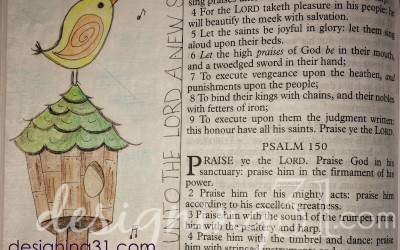 sing praises
4 For the LORD taketh pleasure in his people; he
will beautify the meek with salvation.
5 Let the saints be joyful in glory: let them sing
aloud upon their beds.
6 Let the high praises of God be in their mouth,
and a twoedged sword in their hand;
7 To execute vengeance upon the heathen, and
punishments upon the people;
8 To bind their kings with chains, and their nobles
with fetters of iron;
9 To execute upon them the judgment written:
this honour have all his saints. Praise ye the LORD.
PSALM 150
PRAISE ye the LORD. Praise God in his
sanctuary: praise him in the firmament of his
power.
2 Praise him for his mighty acts: praise him
according to his excellent greatness.
3 Praise him with the sound of the trumpet: praise
him with the psaltery and harp.
4 Praise him with the timbrel and dance: praise
him with stringed instruments
TO THE LORD A NEW S
designing31.com